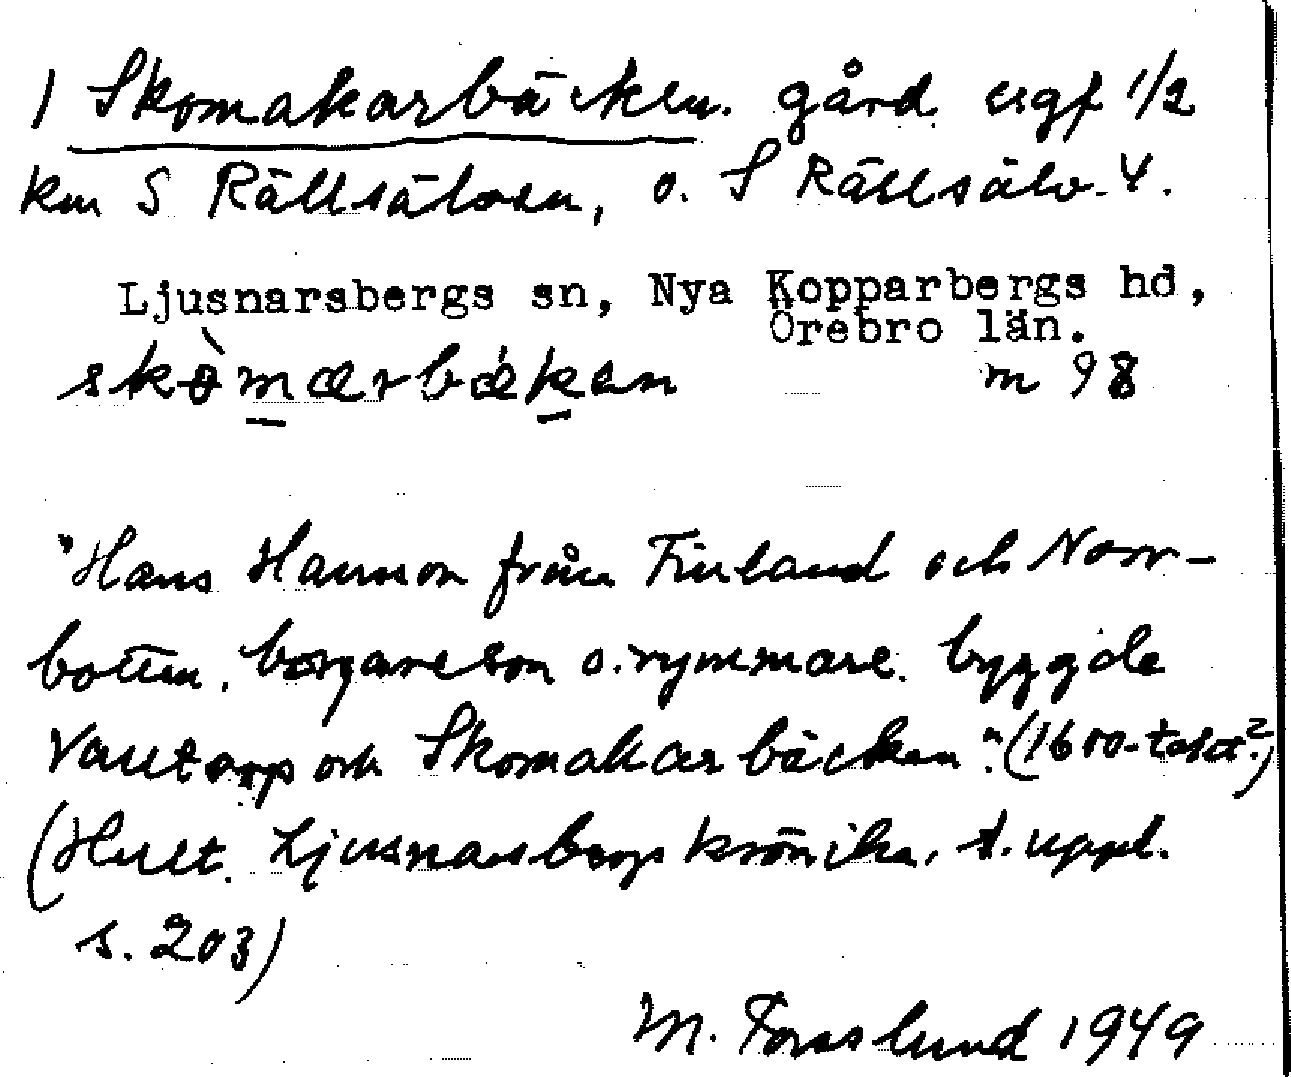 1 Skomakarbäcken. gård ugf 1/2
km S Rällsälven, o. S Rällsälv. 4.
Ljusnarsbergs sn, Nya Kopparbergs hd,
Örebro län.
skò̵mærbækən m 98
"Hans Hanson från Finland och Norr-
botten, borgareson o. rymmare. byggde
och Skomakarbäcken". (1600-talet?)
(Hult. Ljusnarsbergs krönika, 1. uppl.
s. 203)
M. Forslund 1949